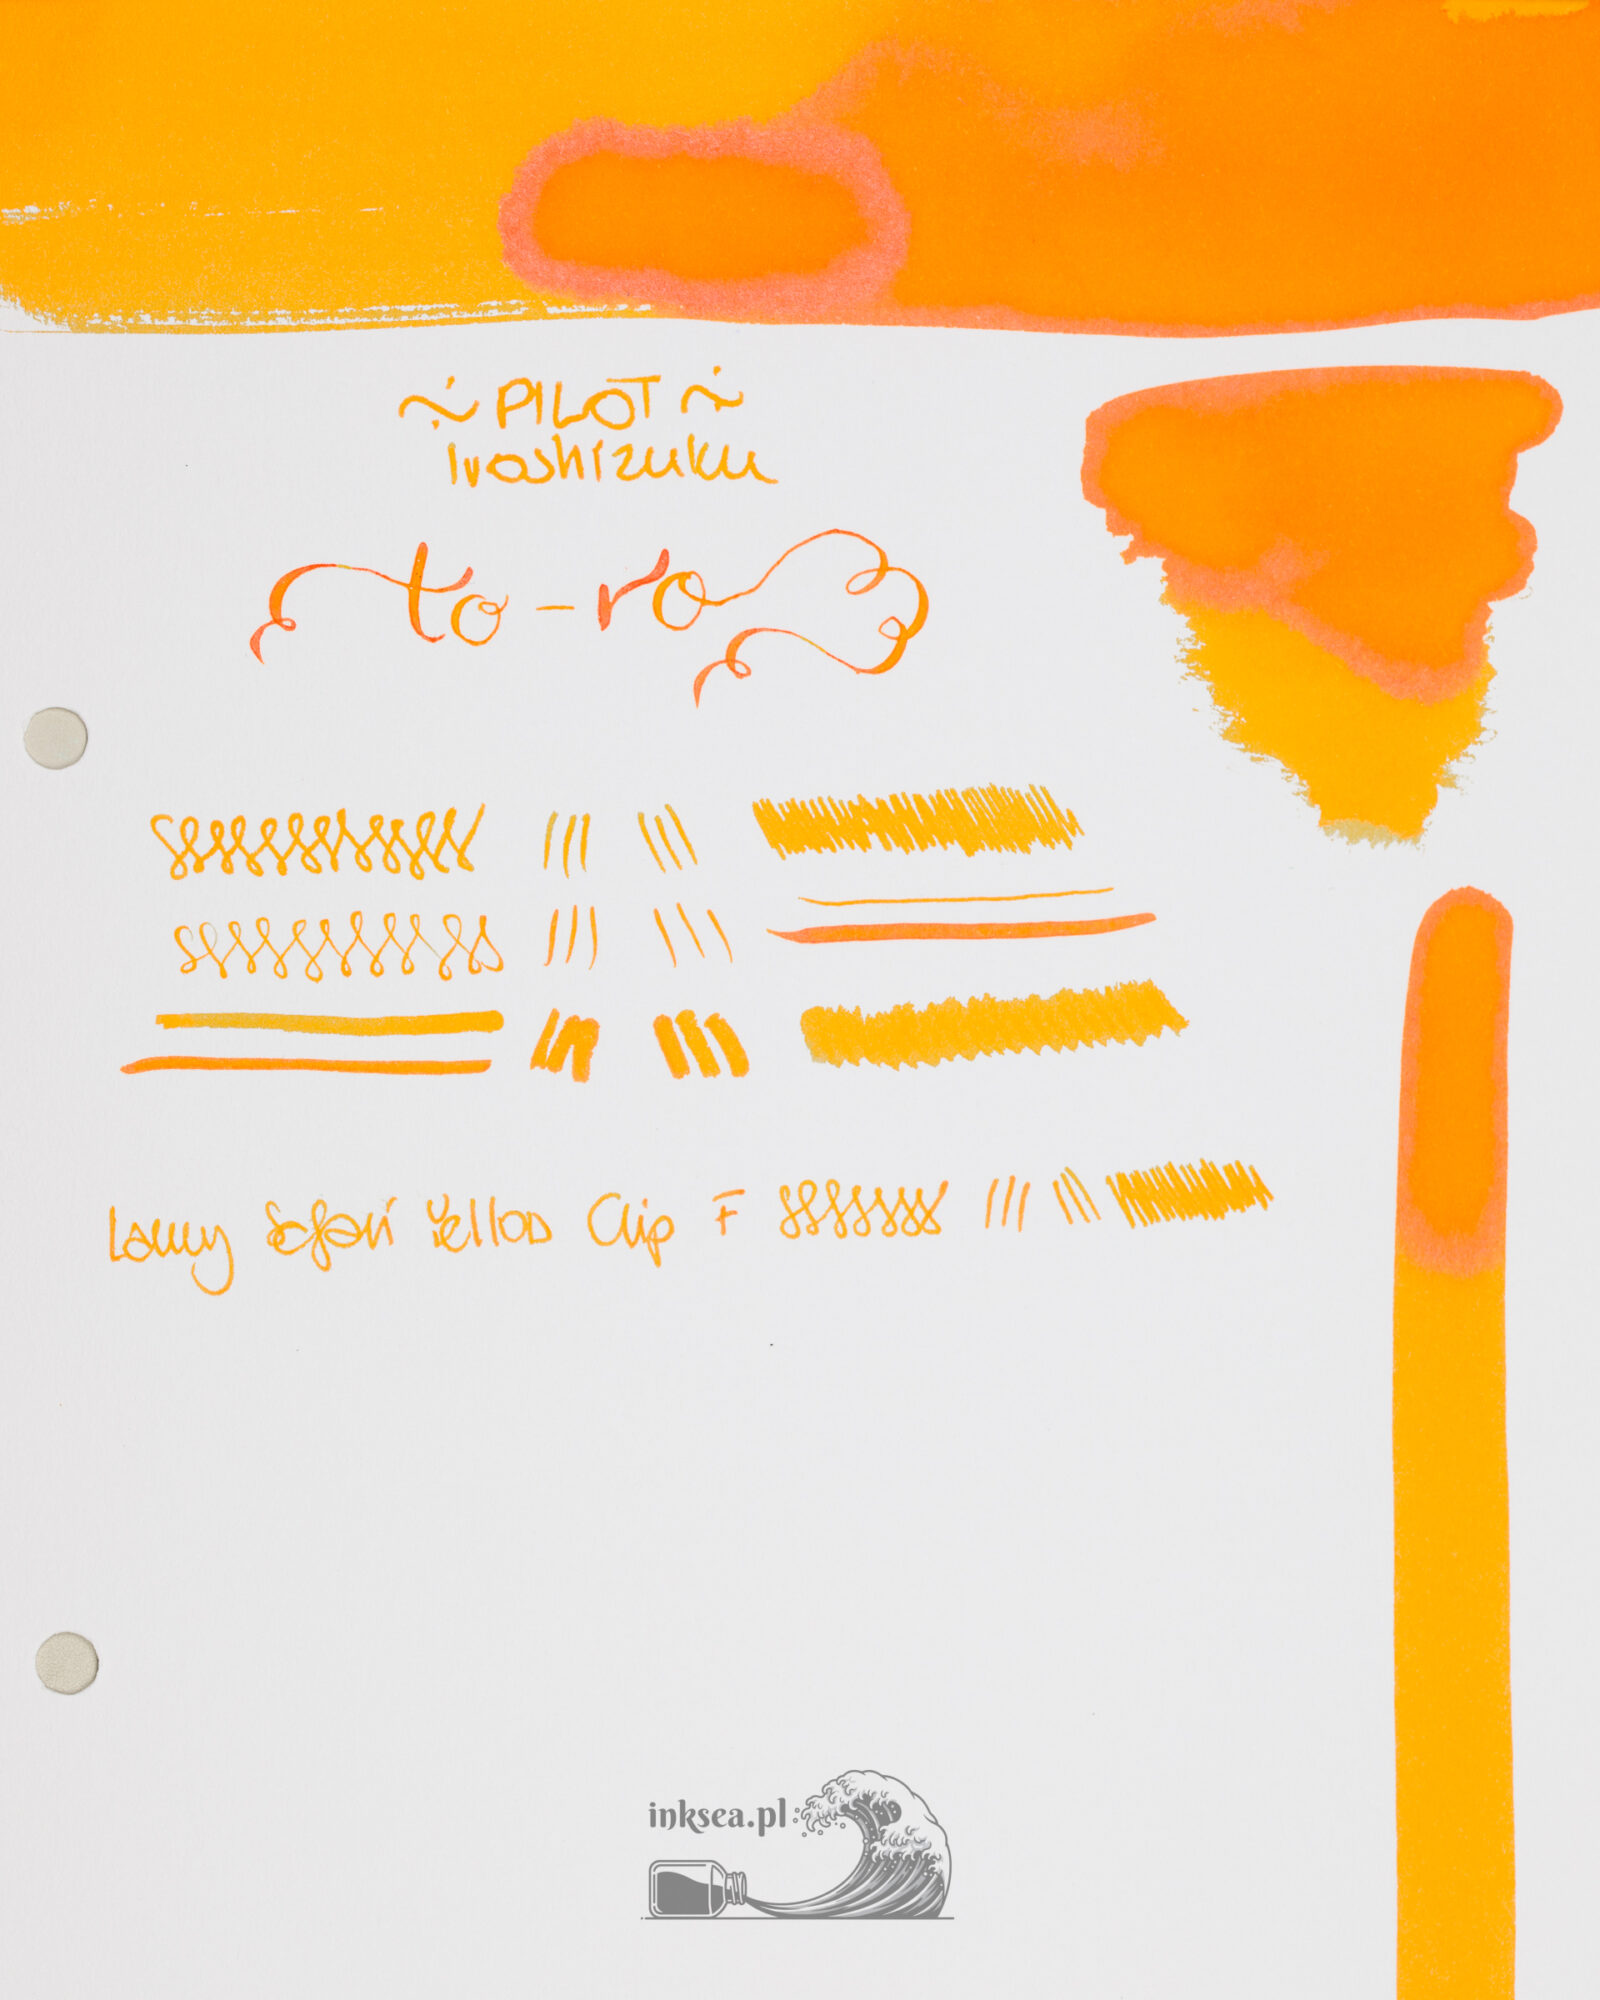 ~ PILOT ~
Iroshizuku
to-ro
Lamy Safari Yellow Clip F
inksea.pl